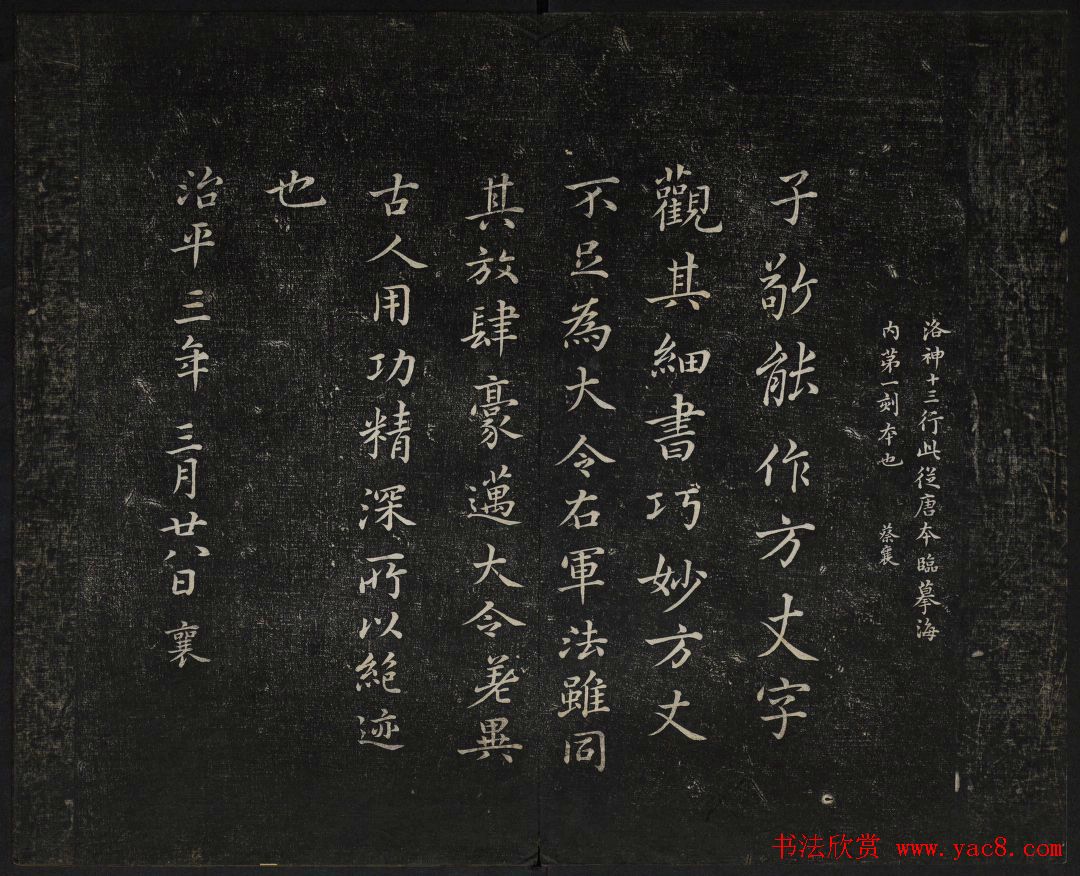 洛神十三行此從唐本臨摹海
内第一刻本也 蔡襄
子敬能作方丈字
觀其細書巧妙方丈
不足為大令右軍法雖同
其放肆豪邁大令差異
古人用功精深所以絕迹
也
治平三年三月廿八日襄
书法欣赏 www.yac8.com